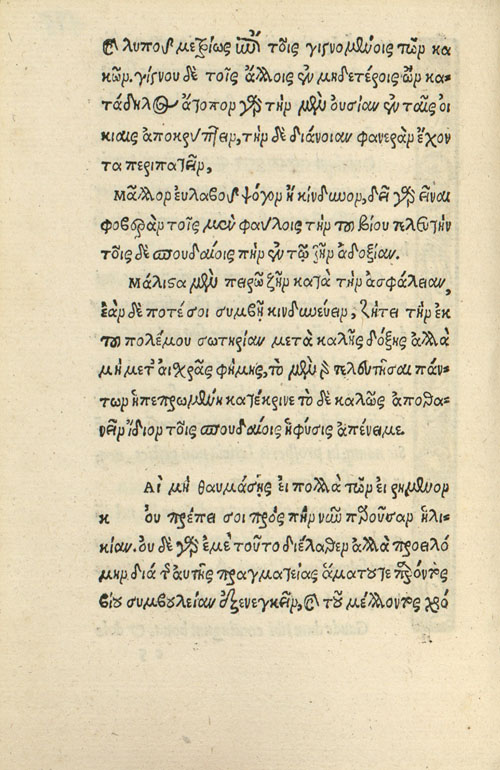 καὶ λυποῦ μετρίως ἐπὶ τοῖς γιγνομένοις τῶν κα
κῶν. γίγνου δὲ τοῖς ἄλλοις ἐν μηδετέροις ὢν κα-
τάδηλος ἄτοπον γὰρ τὴν μὲν οὐσίαν ἐν ταῖς οἰ
κίαις ἀποκρύπτειν, τὴν δὲ διάνοιαν φανερὰν ἔχον
τα περιπατεῖν,
Μᾶλλον εὐλαβοῦ ψόγον ἢ κίνδυνον, δεῖ γὰρ εἶναι
φοβερὰν τοῖς μὲν φαύλοις τὴν τοῦ βίου τελευτὴν
τοῖς δὲ σπουδαίοις τὴν ἐν τῷ ζῆν ἀδοξίαν.
Μάλιστα μὲν πειρῶ ζῆν κατὰ τὴν ἀσφάλειαν,
ἐὰν δὲ ποτέ σοι συμβῇ κινδυνεύειν, ζήτει τὴν ἐκ
τοῦ πολέμου σωτηρίαν μετὰ καλῆς δόξης ἀλλὰ
μὴ μετ' αἰχρᾶς φήμης, τὸ μὲν γὰρ τελευτῆσαι πάν-
των ἡ πεπρωμένη κατέκρινε τὸ δὲ καλῶς ἀποθα-
νεῖν ἴδιον τοῖς σπουδαίοις ἡ φύσις ἀπένειμε.
κ Αὶ μὴ θαυμάσῃς εἰ πολλὰ τῶν εἰρημένων
οὐ πρέπει σοι πρὸς τὴν νῦν παροῦσαν ἡλι-
κίαν. οὐ δὲ γὰρ ἐμὲ τοῦτο διέλαθεν ἀλλὰ προειλό
μην διὰ τ' αὐτῆς πραγματείας ἅμα τοῦ τε παρόντος
βίου συμβουλείαν ἐξενεγκεῖν, καὶ τοῦ μέλλοντος χρό